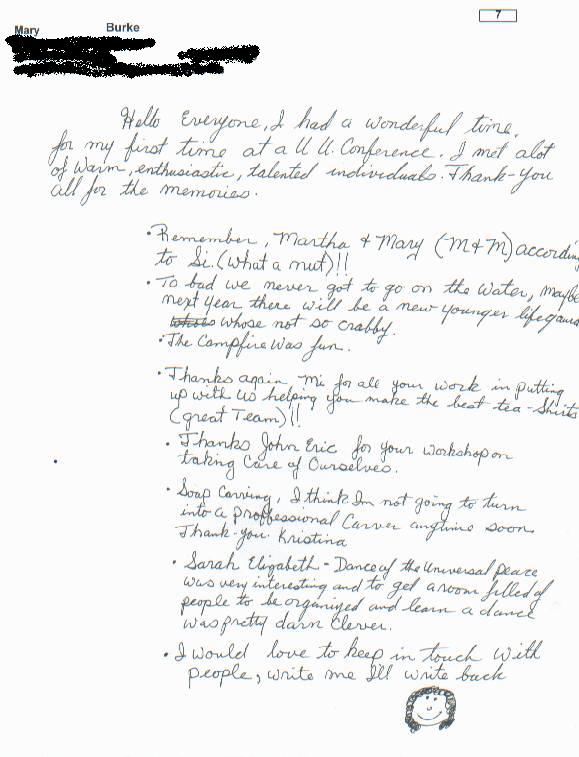 7
Mary Burke
Hello Everyone, I had a wonderful time,
for my first time at a U U. Conference. I met alot
of Warm, enthusiastic, talented individuals. Thank-You
all for the memories.
• Remember, Martha & Mary (M&M) according
to Si. (what a nut)!!
• To bad we never got to go on the water, maybe
next year there will be a new younger lifeguard
whose not so crabby.
• The Campfire was fun.
• Thanks again Mi for all your work in putting
up with us helping you make the best tea-Shirts
(great Team)!!
• Thanks John Eric for your workshop on
taking Care of Ourselves.
• Soap Carving, I think Im not going to turn
into a proffessional Carver anytime soon.
Thank-you Kristina
• Sarah Elizabeth - Dance of the Universal peace
was very interesting and to get a room filled of
people to be organized and learn a dance
was pretty darn Clever.
• I would love to keep in touch with
people, write me I'll write back